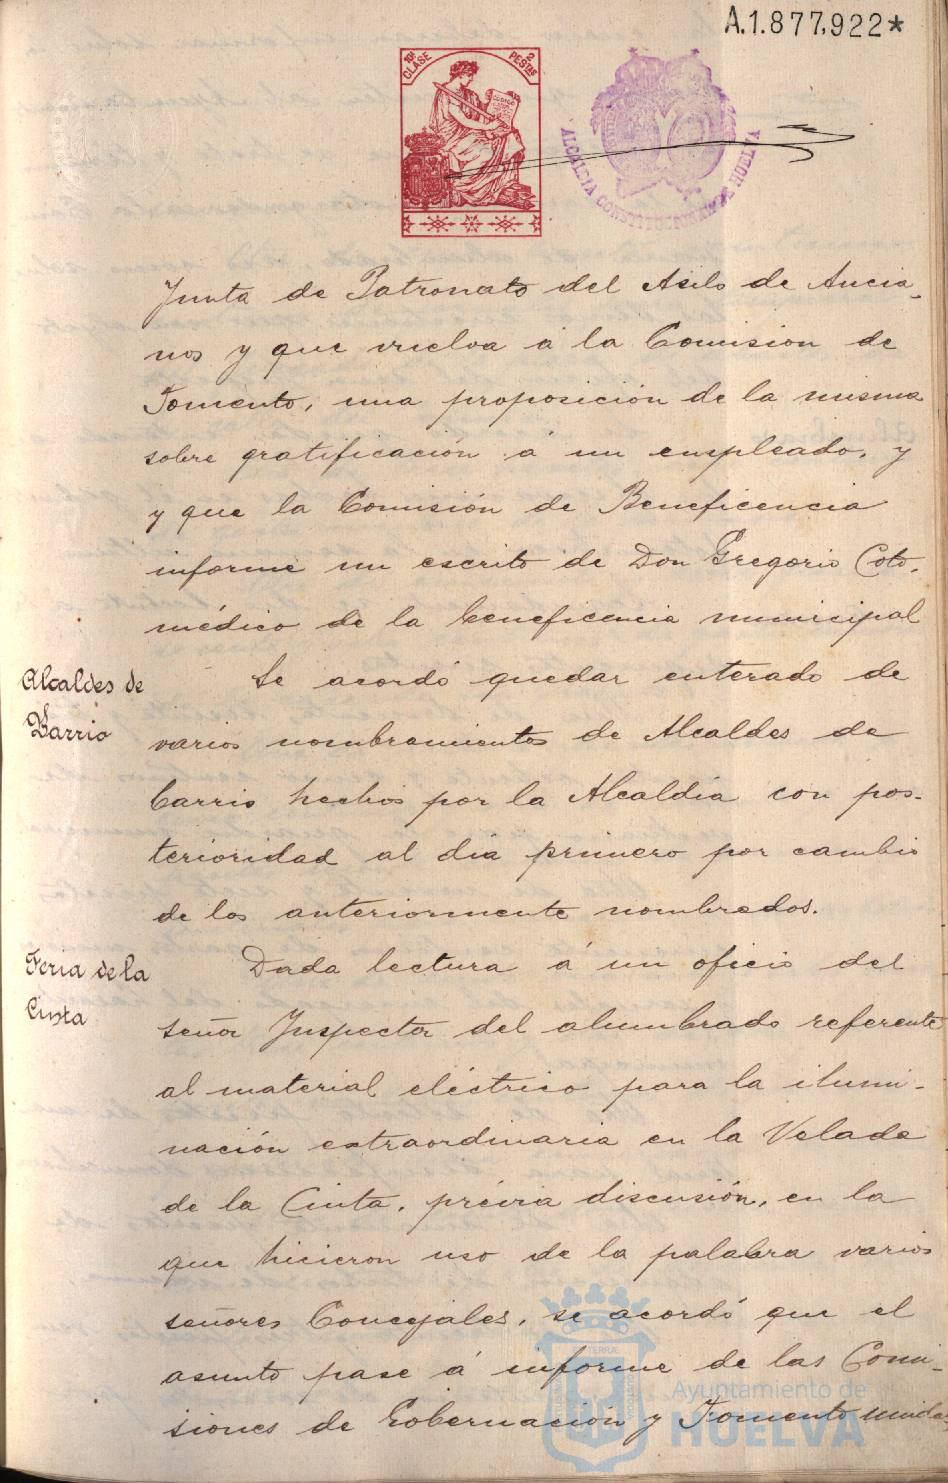 A.1.877,922*
10ª CLASE
2 PESTAS
CODIGO
ALCALDIA CONSTITUCIONAL DE HUELVA
Junta de Patronato del Asilo de Ancia-
nos y que vuelva á la Comision de
Fomento, una proposición de la misma
sobre gratificación á un empleado, y
y que la Comisión de Beneficencia
informe un escrito de Don Gregorio Coto,
médico de la beneficencia municipal
Alcaldes de
Barrio
Se acordó quedar enterado de
varios nombramientos de Alcaldes de
barrio hechos por la Alcaldía con pos-
terioridad al día primero por cambio
de los anteriormente nombrados.
Feria de la
Cinta
Dada lectura á un oficio del
señor Inspector del alumbrado referente
al material eléctrico para la ilumi-
nación extraordinaria en la Velada
de la Cinta, prévia discusión, en la
que hicieron uso de la palabra varios
señores Concejales, se acordó que el
asunto pase á informe de las Comi-
siones de Gobernación y Fomento unida-
Ayuntamiento de
HUELVA